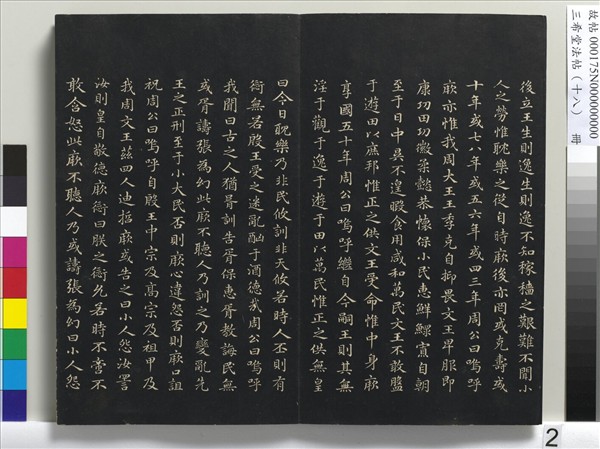 後立王生則逸生則逸不知稼穡之艱難不聞小
人之勞惟耽樂之從自時厥後亦罔或克壽或
十年或七八年或五六年或四三年周公曰嗚呼
厥亦惟我周大王王季克自抑畏文王卑服即
康功田功徽柔懿恭懷保小民惠鮮鰥寡自朝
至于日中昃不遑暇食用咸和萬民文王不敢盤
于遊田以庶邦惟正之供文王受命惟中身厥
享國五十年周公曰嗚呼繼自今嗣王則其無
淫于觀于逸于遊于田以萬民惟正之供無皇
曰今日耽樂乃非民攸訓非天攸若時人丕則有
愆無若殷王受之迷亂酗于酒德哉周公曰嗚呼
我聞曰古之人猶胥訓告胥保惠胥教誨民無
或胥譸張為幻此厥不聽人乃訓之乃變亂先
王之正刑至于小大民否則厥心違怨否則厥口詛
祝周公曰嗚呼自殷王中宗及高宗及祖甲及
我周文王茲四人迪哲厥或告之曰小人怨汝詈
汝則皇自敬德厥愆曰朕之愆允若時不啻不
敢含怒此厥不聽人乃或譸張為幻曰小人怨
故帖 000175N000000000
三希堂法帖(十八) 冊
2